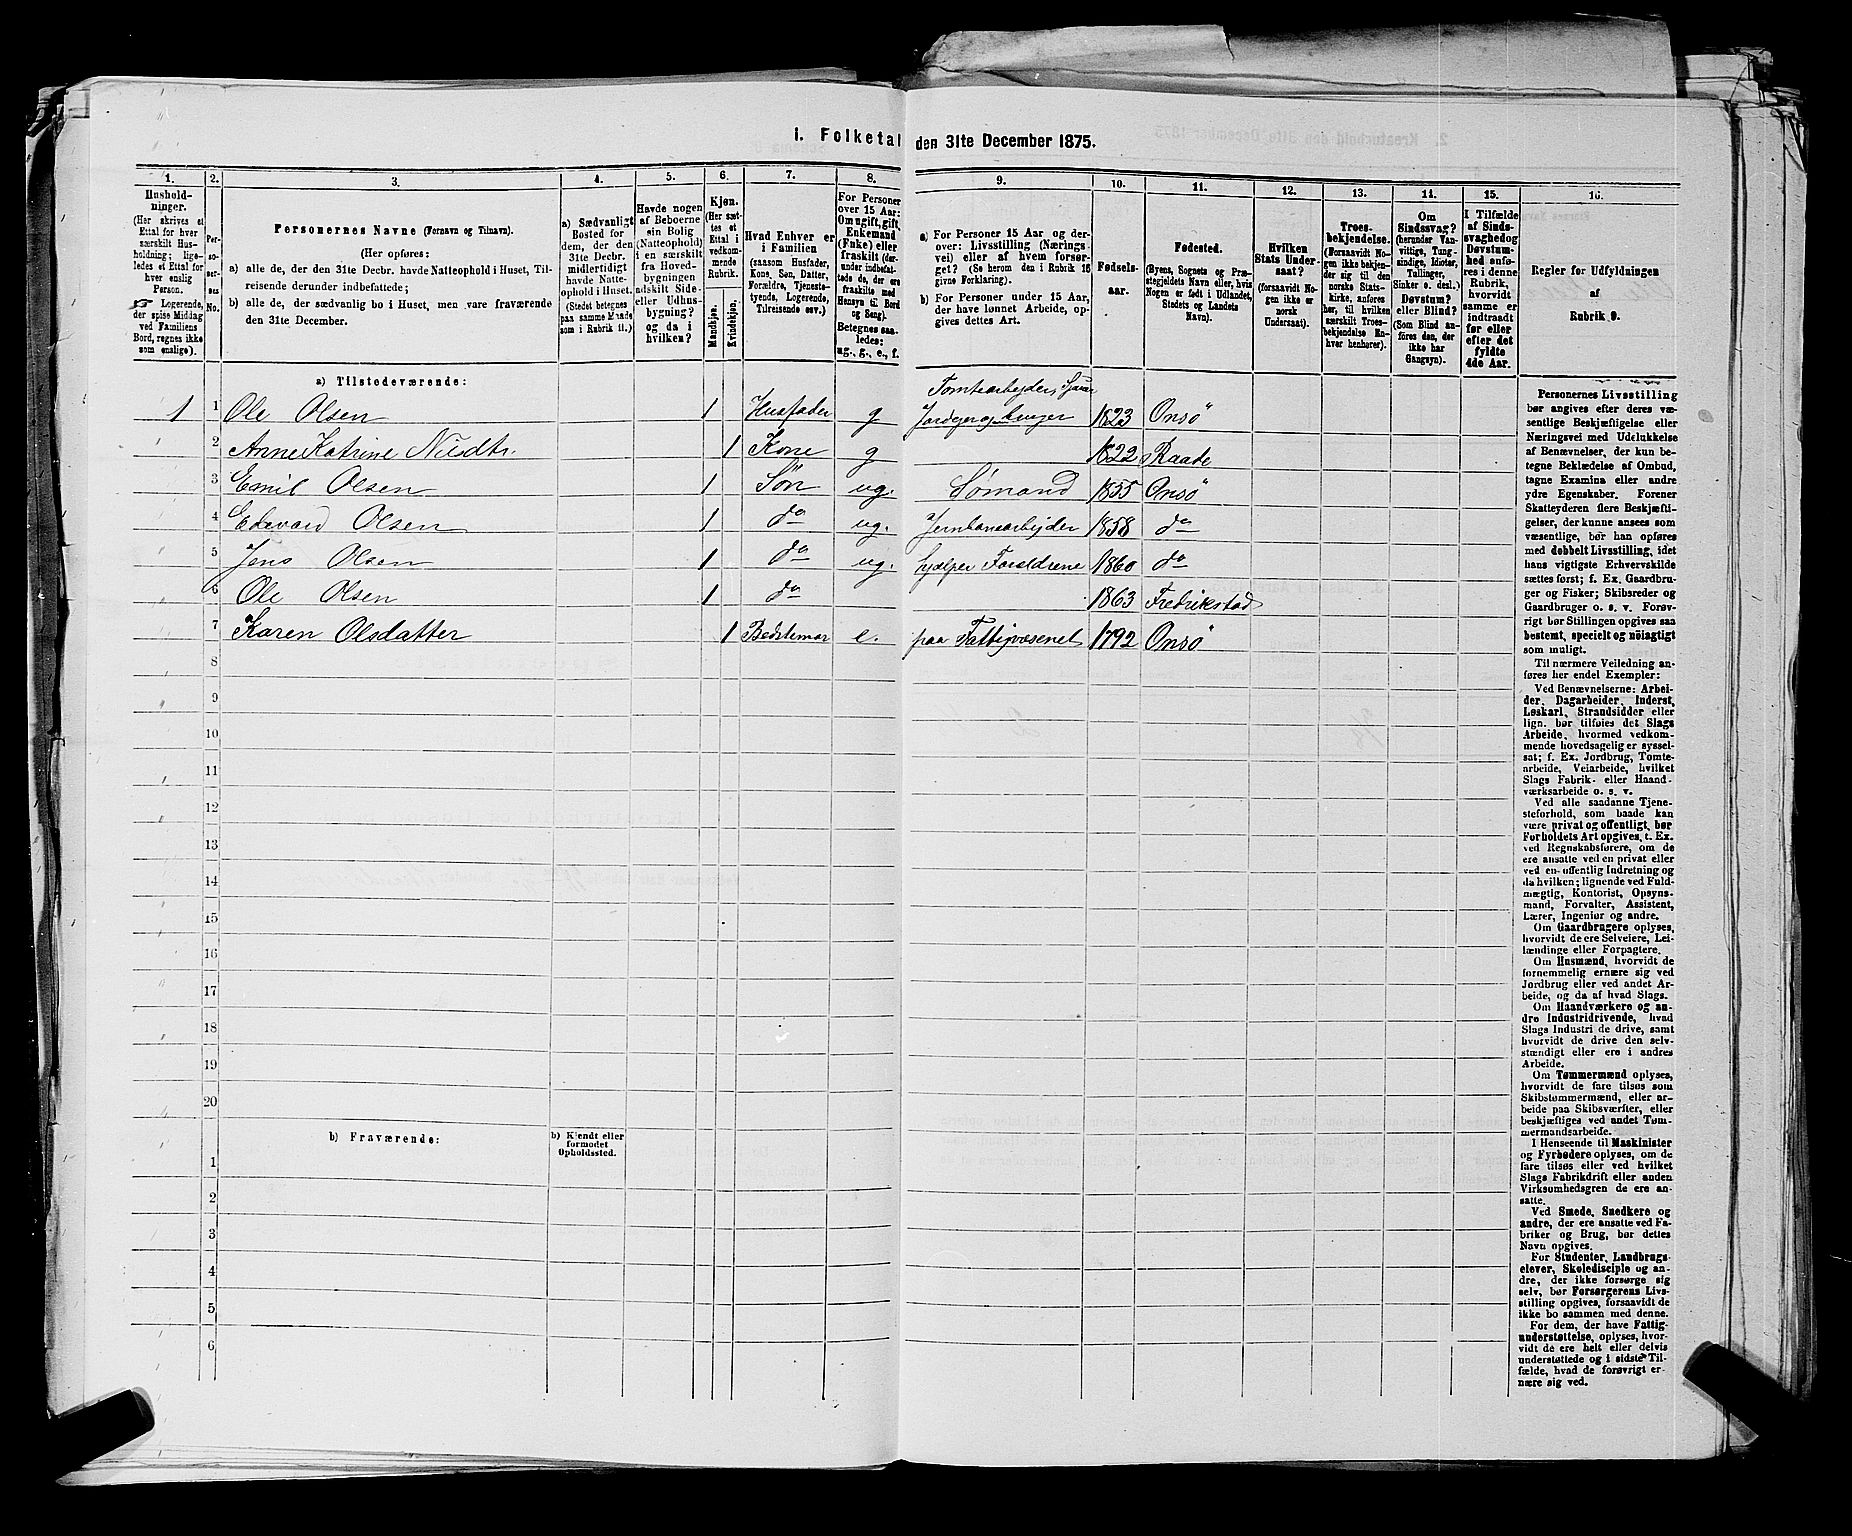 1. Folketal den 31te December 1875.
1. 2. 3. 4. 5. 6. 7. 8. 9. 10. 11. 12. 13. 14. 15. 16.
Hushold-
ninger.
(Her skrives et
Ettal for hver
særskilt Hus-
holdning; lige-
ledes et Ettal for
hver enslig
Person.
Logerende,
der spise Middag
ved Familiens
Bord, regnes ikke
som enslige).
Per-
so-
ner-
nes
No.
Personernes Navne (Fornavn og Tilnavn).
(Her opføres:
a) alle de, der den 31te Decbr. havde Natteophold i Huset, Til-
reisende derunder indbefattede;
b) alle de, der sædvanlig bo i Huset, men vare fraværende
den 31te December.
a) Sædvanligt
Bosted for
dem, der den
31te Decbr.
midlertidigt
havde Natte-
ophold i Huset.
(Stedet betegnes
paa samme Maade
som i Rubrik 11.)
Havde nogen
af Beboerne
sin Bolig
(Natteophold)
i en særskilt
fra Hoved-
bygningen
adskilt Side-
eller Udhus-
bygning?
og da i
hvilken?
Kjøn.
(Her sæt-
tes et
Ettal i
vedkom-
mende
Rubrik.
Mandkjøn.
Kvindekjøn.
Hvad Enhver er
i Familien
(saasom Husfader,
Kone, Søn, Datter,
Forældre, Tjeneste-
tyende, Logerende,
Tilreisende osv.)
For Personer
over 15 Aar:
Om ugift, gift,
Enkemand
(Enke) eller
fraskilt (der-
under indbefat-
tede de, der ere
fraskilte med
Hensyn til Bord
og Seng).
Betegnes saa-
ledes:
ug., g., e., f.
a) For Personer 15 Aar og der-
over: Livsstilling (Nærings-
vei) eller af hvem forsør-
get? (Se herom den i Rubrik 16
givne Forklaring).
b) For Personer under 15 Aar,
der have lønnet Arbeide, op-
gives dettes Art.
Fødsels-
aar.
Fødested.
(Byens, Sognets og Præ-
stegjeldets Navn eller, hvis
Nogen er født i Udlandet,
Stedets og Landets
Navn).
Hvilken
Stats Under-
saat?
(forsaavidt No-
gen ikke er
norsk
Undersaat).
Troes-
bekjendelse.
(Forsaavidt No-
gen ikke bekjen-
der sig til den
norske Stats-
kirke, anføres
her, til hvilken
særskilt Troes-
bekjendelse En-
hver henhører).
Om
Sindssvag?
(herunder Van-
vittige, Tung-
sindige, Idioter,
Tullinger,
Sinker o. desl.)
Døvstum?
eller Blind?
(Som Blind an-
føres den, der
ikke har
Gangsyn).
I Tilfælde
af Sinds-
svaghed og
Døvstum-
hed anfø-
res i denne
Rubrik,
hvorvidt
samme er
indtraadt
før eller
efter det
fyldte
4de Aar.
Regler for Udfyldningen
af
Rubrik 9.
a) Tilstedeværende:
1 1 Ole Olsen 1 Husfader g 1823 Onsö
2 Anne Katrine 1 Kone g 1822 Raade
3 Emil Olsen 1 Søn ug. Sømand 1855 Onsö
4 Edevard Olsen 1 do ug. Jernbanearbejder 1858 do
5 Jens Olsen 1 do ug. hjælper Forældrene 1860 do
6 Ole Olsen 1 do 1863 Fredrikstad
7 Karen Olsdatter 1 Bedstemor e. paa Fattigvæsenet 1792 Onsö
8
9
10
11
12
13
14
15
16
17
18
19
20
b) Fraværende:
b) Kjendt eller
formodet
Opholdssted.
1
2
3
4
5
6
Personernes Livsstilling
bør angives efter deres væ-
sentlige Beskjæftigelse eller
Næringsvei med Udelukkelse
af Benævnelser, der kun be-
tegne Beklædelse af Ombud,
tagne Examina eller andre
ydre Egenskaber. Forener
Skatteyderen flere Beskjæfti-
gelser, der kunne ansees som
væsentlige, bør han opføres
med dobbelt Livsstilling, idet
hans vigtigste Erhvervskilde
sættes først; f. Ex. Gaardbru-
ger og Fisker; Skibsreder og
Gaardbruger o. s. v. Forøv-
rigt bør Stillingen opgives saa
bestemt, specielt og nøiagtigt
som muligt.
Til nærmere Veiledning an-
føres her endel Exempler:
Ved Benævnelserne: Arbei-
der, Dagarbeider, Inderst,
Løskarl, Strandsidder eller
lign. bør tilføies det Slags
Arbeide, hvormed vedkom-
mende hovedsagelig er syssel-
sat; f. Ex. Jordbrug, Tomte-
arbeide, Veiarbeide, hvilket
Slags Fabrik- eller Haand-
værksarbeide o. s. v.
Ved alle saadanne Tjene-
steforhold, som baade kan
være privat og offentligt, bør
Forholdets Art opgives, t. Ex.
ved Regnskabsførere, om de
ere ansatte ved en privat eller
ved en offentlig Indretning og
da hvilken; lignende ved Fuld-
mægtig, Kontorist, Opsyns-
mand, Forvalter, Assistent,
Lærer, Ingeniør og andre.
Om Gaardbrugere oplyses,
hvorvidt de ere Selveiere, Lei-
lændinge eller Forpagtere.
Om Husmænd, hvorvidt de
fornemmelig ernære sig ved
Jordbrug eller ved andet Ar-
beide, og da af hvad Slags.
Om Haandværkere og an-
dre Industridrivende, hvad
Slags Industri de drive, samt
hvorvidt de drive den selv-
stændigt eller ere i andres
Arbeide.
Om Tømmermænd oplyses,
hvorvidt de fare tilsøs som
Skibstømmermænd, eller ar-
beide paa Skibsværfter, eller
beskjæftiges ved andet Tøm-
mermandsarbeide.
I Henseende til Maskinister
og Fyrbødere oplyses, om de
fare tilsøs eller ved hvilket
Slags Fabrikdrift eller anden
Virksomhedsgren de ere an-
satte.
Ved Smede, Snedkere og
andre, der ere ansatte ved Fa-
briker og Brug, bør dettes
Navn opgives.
For Studenter, Landbrugs-
elever, Skoledisciple og an-
dre, der ikke forsørge sig
selv, bør Forsørgerens Livs-
stilling opgives, forsaavidt de
ikke bo sammen med denne.
For dem, der have Fattig-
understøttelse, oplyses, hvor-
vidt de ere helt eller delvis
understøttede og i sidste Til-
fælde, hvad de forøvrigt er-
nære sig ved.